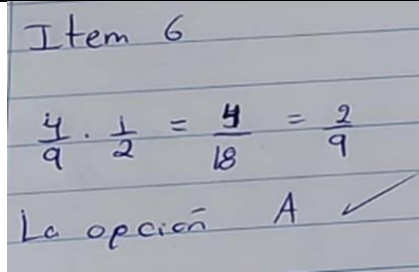 Item 6
4/9 · 1/2 = 4/18 = 2/9
La opción A ✓